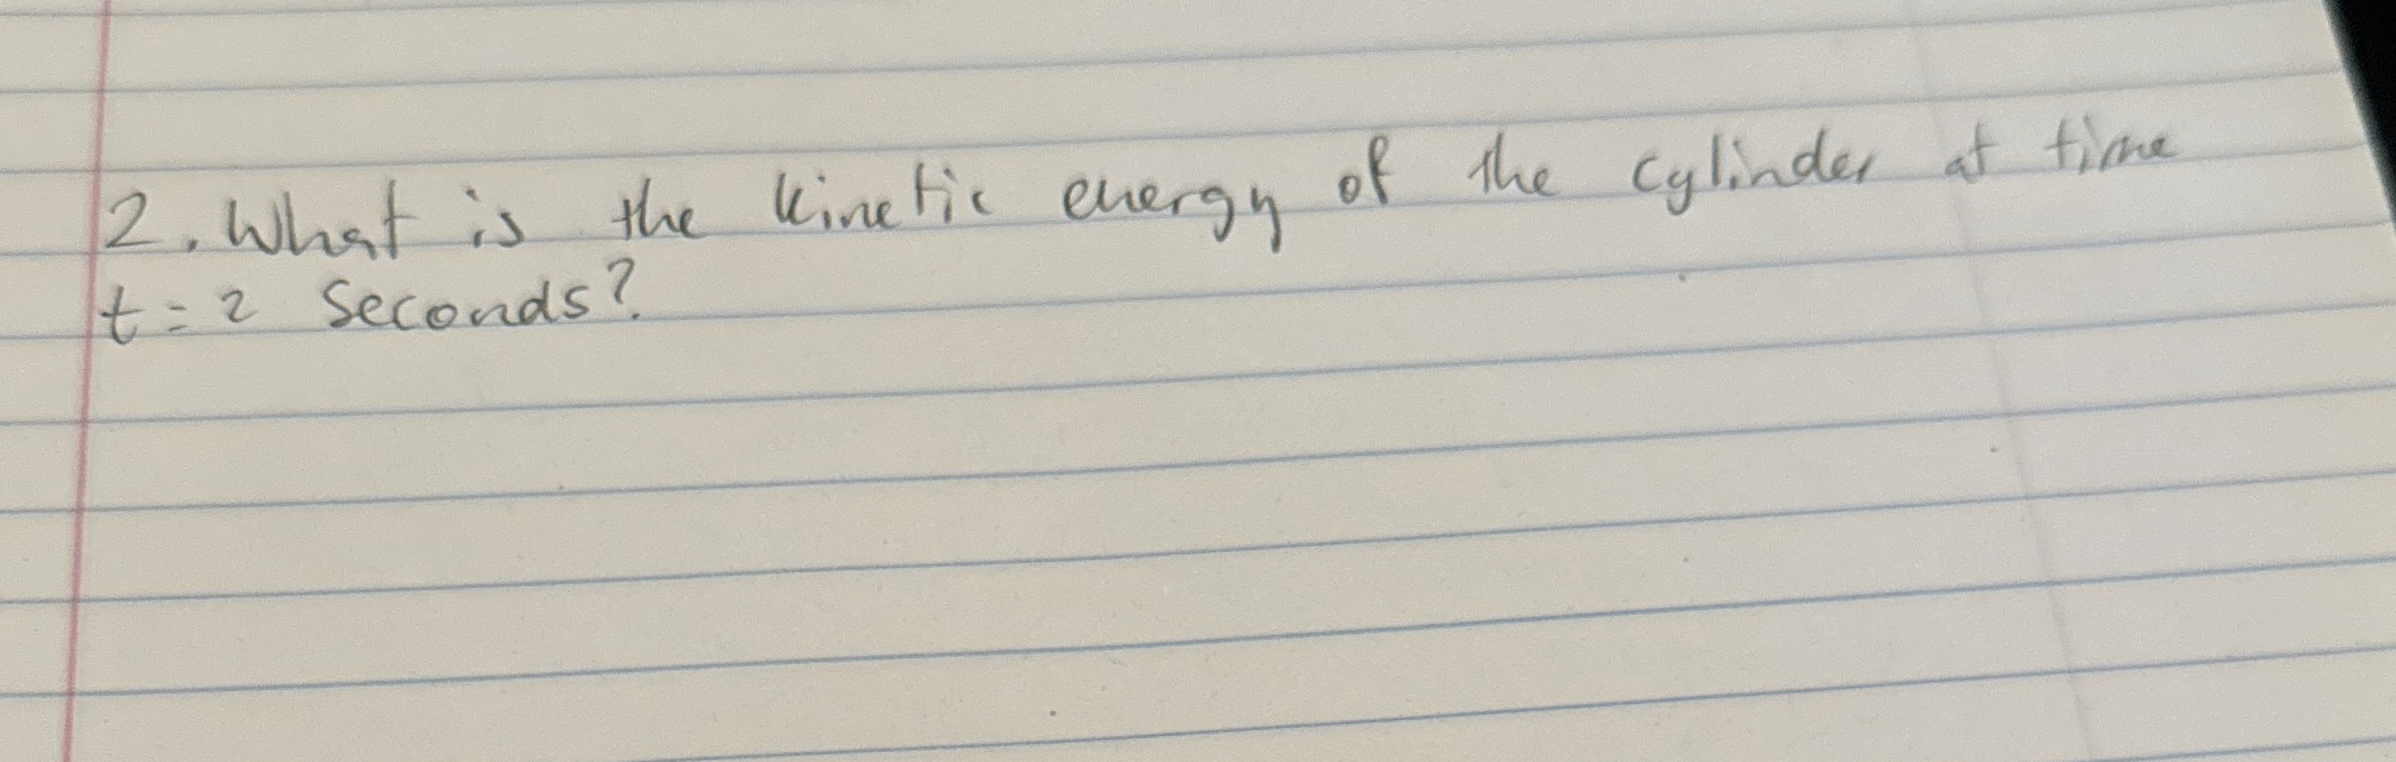 2. What is the kinetic energy of the cylinder at time
t = 2 seconds?